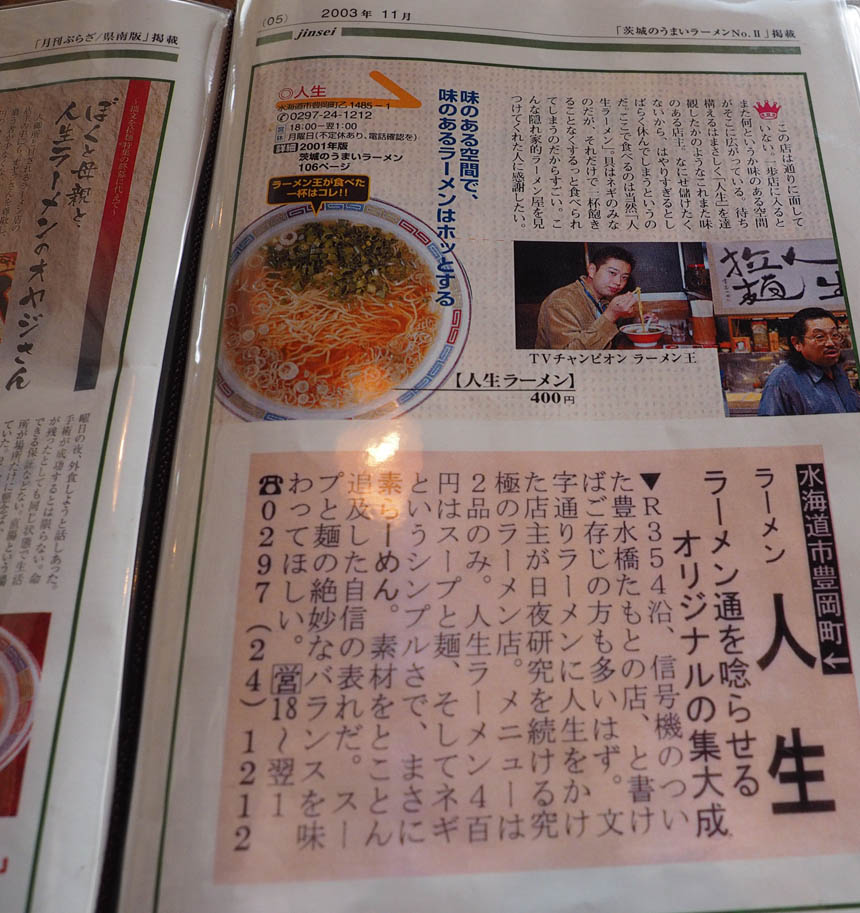 「月刊ぷらざ/県南版」掲載
ぼくと母親と
人生ラーメンのオヤジさん
曜日の夜、外食しようと話しあった。
手術が成功するとは限らない。命
が残ったとしても同じ状態で生活
できる保証などない。
(05) 2003年 11月
jinsei
「茨城のうまいラーメンNo.Ⅱ」掲載
◎人生
水海道市豊岡町乙1485−1
✆0297-24-1212
営 18:00〜翌1:00
休 月曜日(不定休あり、電話確認を)
詳細 2001年版
茨城のうまいラーメン
106ページ
味のある空間で、
味のあるラーメンはホッとする
この店は通りに面して
いない。一歩店に入ると
また何というか味のある空間
がそこに広がっている。待ち
構えるはまさしく「人生」を達
観したかのようなこれまた味
のある店主。なにせ儲けたく
ないから、はやりすぎるとし
ばらく休んでしまうというの
だ。ここで食べるのは当然「人
生ラーメン」。具はネギのみな
のだが、それだけで一杯飽き
ることなくするっと食べられ
てしまうのだからすごい。こ
んな隠れ家的ラーメン屋を見
つけてくれた人に感謝したい。
ラーメン王が食べた
一杯はコレ!!
TVチャンピオン ラーメン王
【人生ラーメン】
400円
水海道市豊岡町←
ラーメン 人生
ラーメン通を唸らせる
オリジナルの集大成
▼R354沿、信号機のつい
た豊水橋たもとの店、と書け
ばご存じの方も多いはず。文
字通りラーメンに人生をかけ
た店主が日夜研究を続ける究
極のラーメン店。メニューは
2品のみ。人生ラーメン4百
円はスープと麺、そしてネギ
というシンプルさで、まさに
素らーめん。素材をとことん
追及した自信の表れだ。スー
プと麺の絶妙なバランスを味
わってほしい。営18〜翌1
☎0297(24)1212